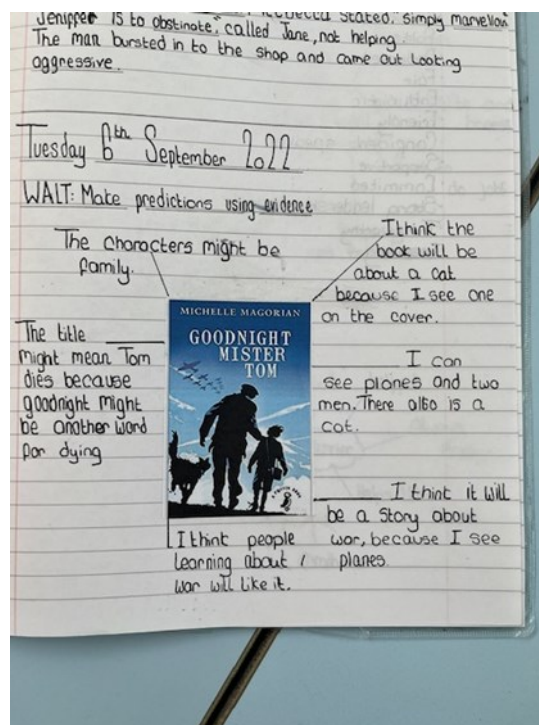 Jenipper is to obstinate", called Jane, not helping
stated. simply marvellous
The man bursted in to the shop and came out looking
aggressive.
Tuesday 6th September 2022
WALT: Make predictions using evidence
The characters might be
family.
I think the
book will be
about a cat
because I see one
on the cover.
The title
might mean Tom
dies because
goodnight might
be another word
for dying
MICHELLE MAGORIAN
GOODNIGHT
MISTER
TOM
I can
see planes and two
men. There also is a
cat.
I think it will
be a story about
war, because I see
planes.
I think people
learning about
war will like it.